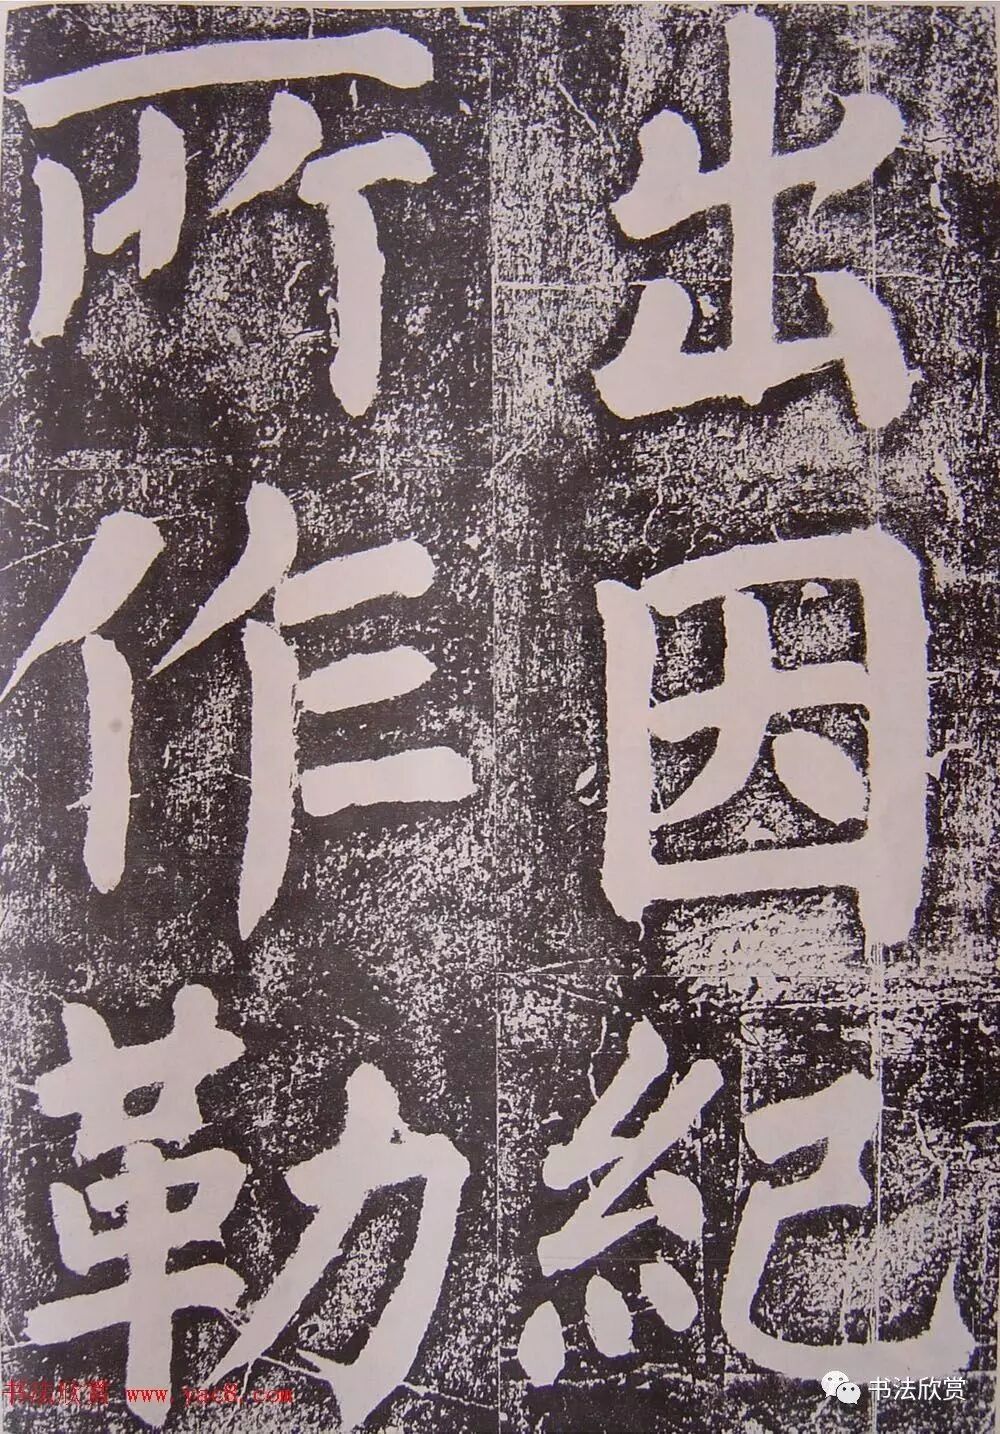 出因紀
所作勒
书法欣赏 www.yac8.com
书法欣赏